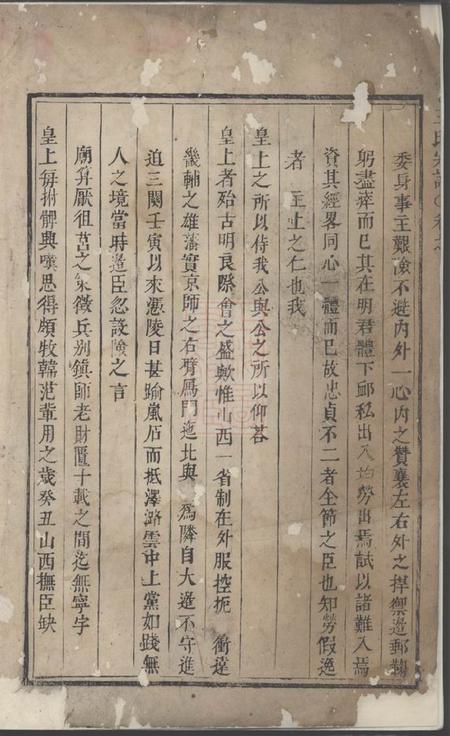 委身事主艱險不避內外一心內之贊襄左右外之捍禦邊鄙鞠
躬盡瘁而已其在明君體下卹私出入均勞出焉試以諸難入焉
資其經畧同心一體而已故忠貞不二者全節之臣也知勞假逸
者 主上之仁也我
皇上之所以待我公與公之所以仰荅
皇上者殆古明良際會之盛歟惟山西一省制在外服控扼 衝邊
畿輔之雄藩實京師之右臂鴈門迤北與 為隣自大邊不守進
迫三關壬寅以來憑陵日甚踰嵐石而抵澤潞雲中上黨如踐無
人之境當時邊臣忽設險之言
廟算厭徂莒之 徵兵別鎮師老財匱十載之間迄無寧宇
皇上每拊髀興嘆思得頗牧韓范輩用之歲癸丑山西撫臣缺